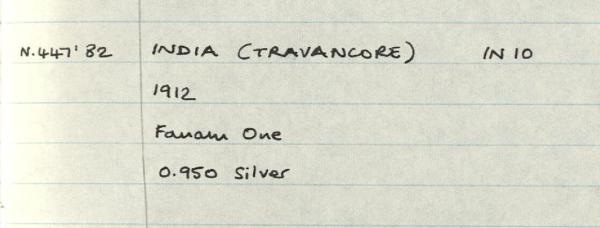 N.447'82 INDIA (TRAVANCORE) IN 10
1912
Fanam One
0.950 Silver